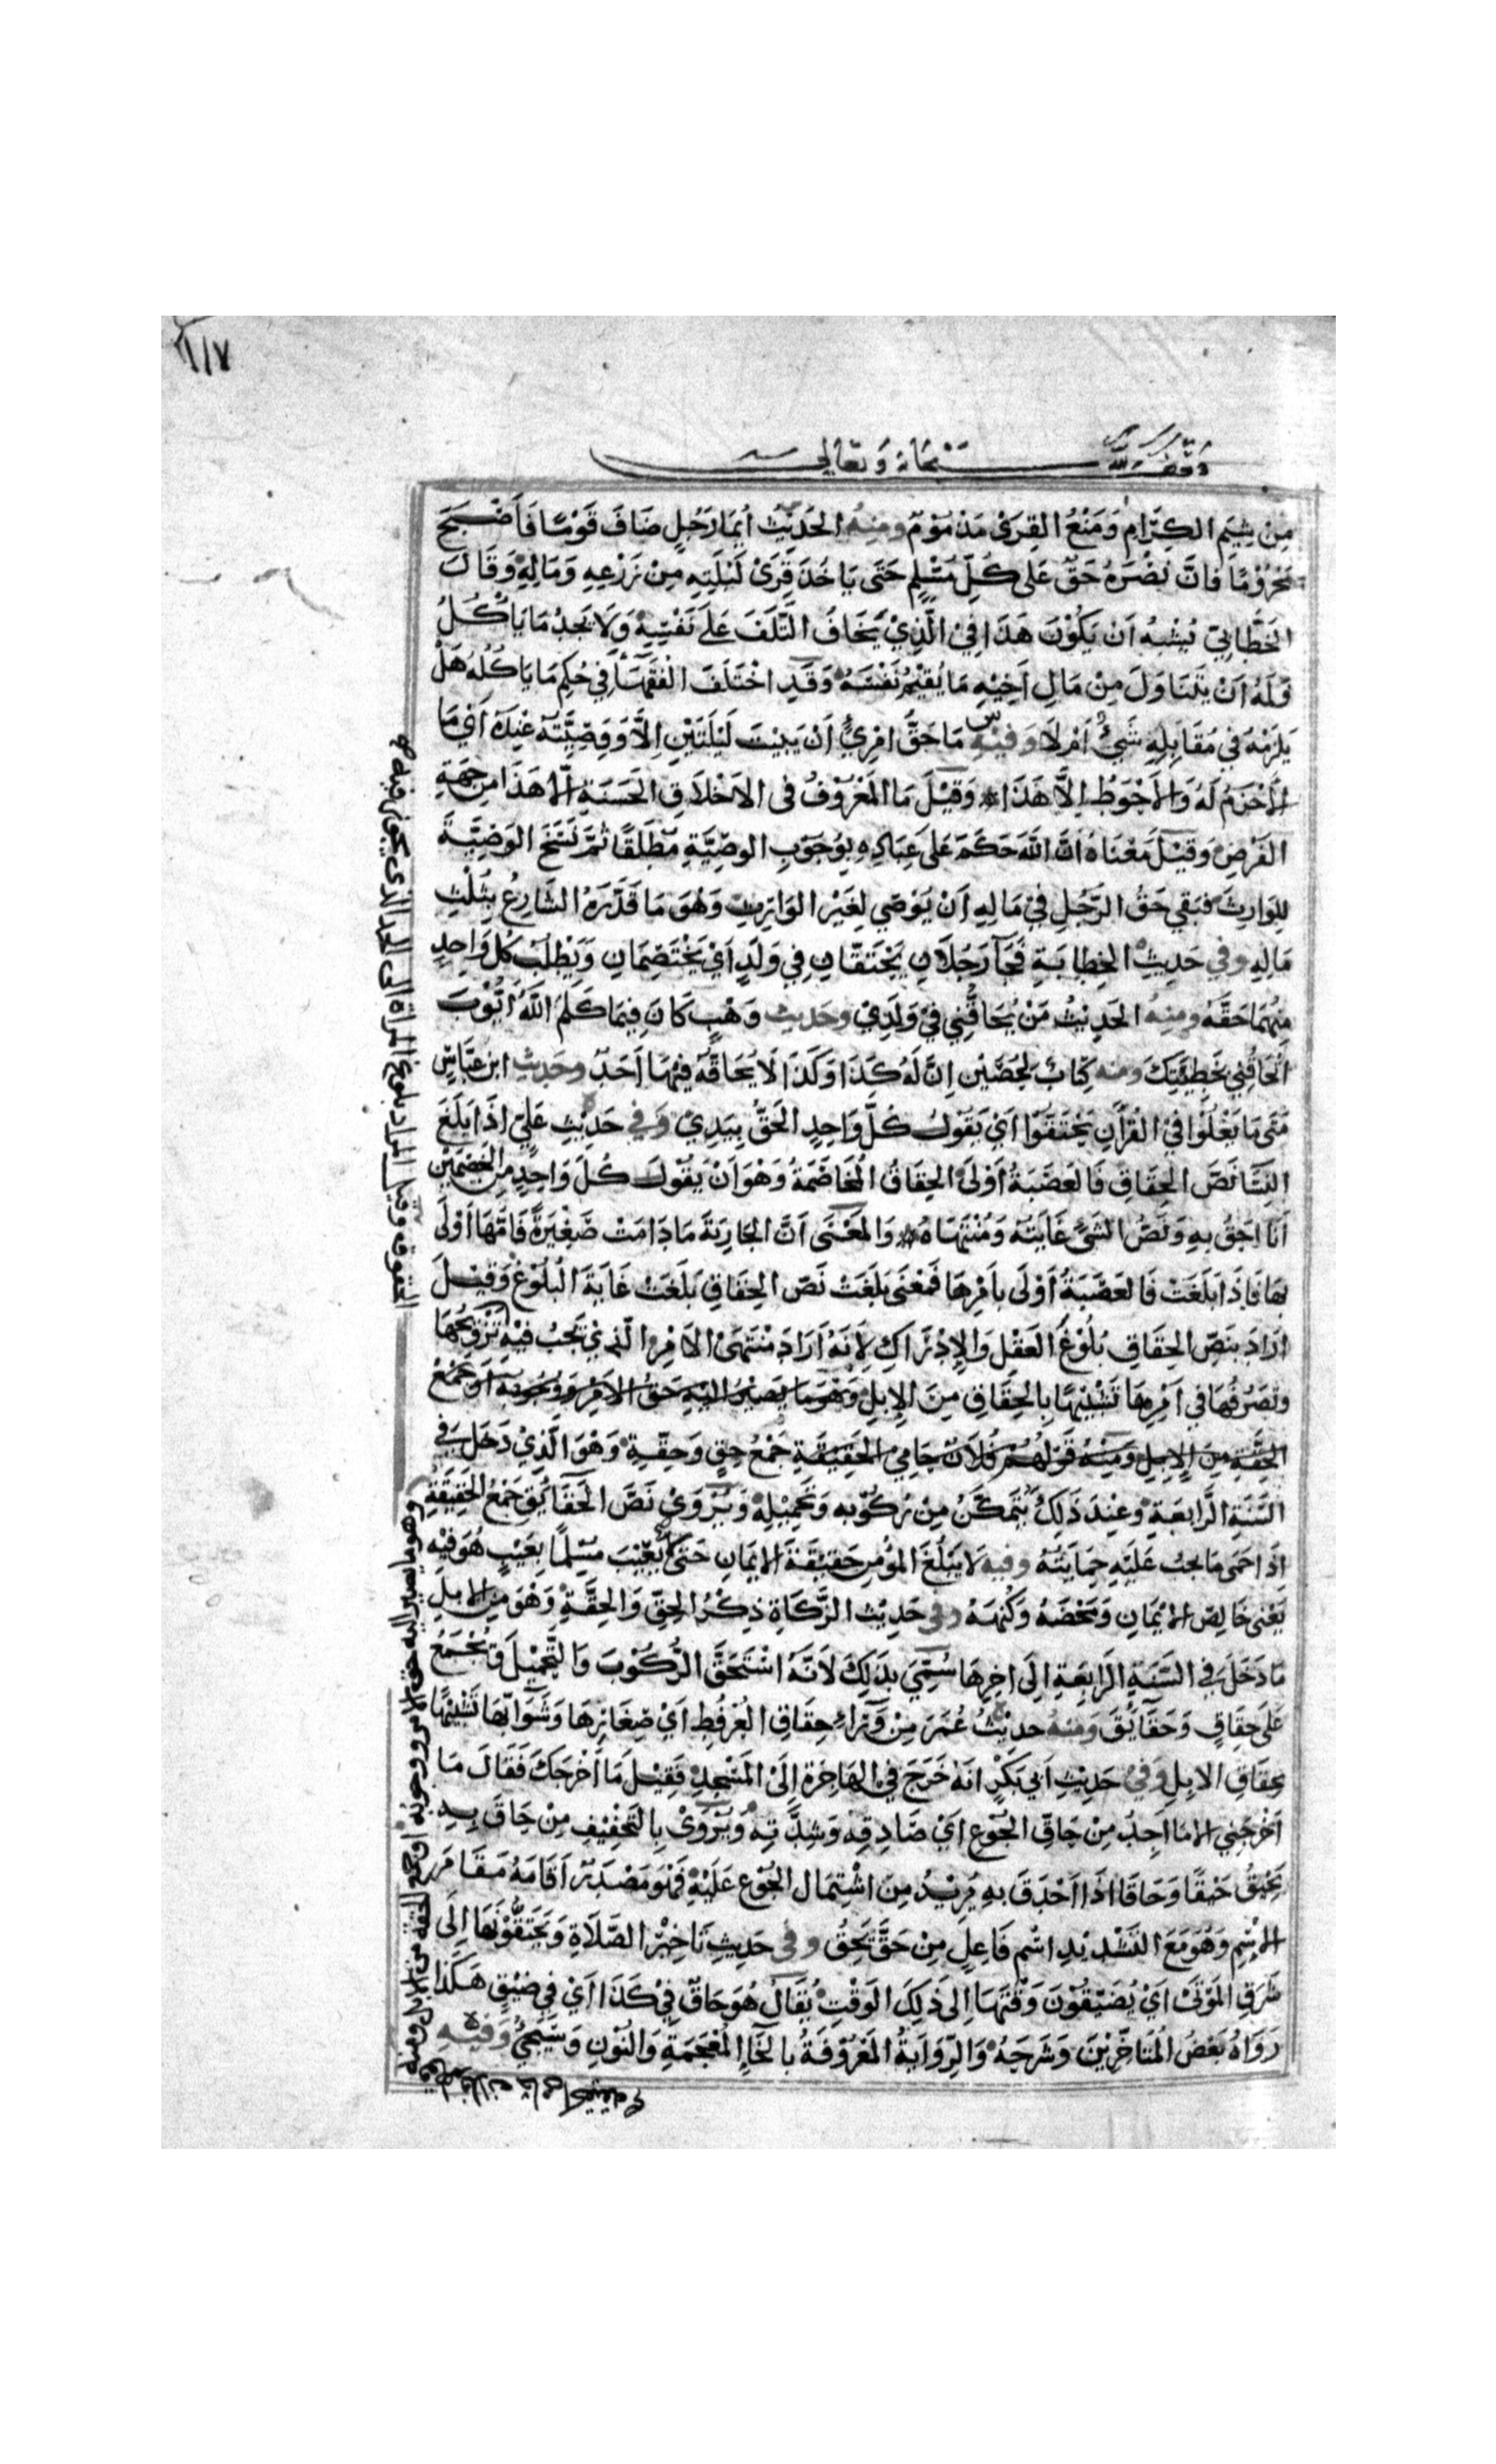 ١١٧
وقف لله سبحانه وتعالى
مِنْ شِيَمِ الكِرَامِ وَمَنْعُ القِرَى مَذْمُوْمٌ ومنه الحَدِيْثُ أيُّمَا رَجُلٍ ضَافَ قَوْمًا فَأَصْبَحَ
مَحْرُوْمًا فَاِنَّ نَصْرَهُ حَقٌّ عَلَى كُلِّ مُسْلِمٍ حَتَى يَاخُذَ قِرَىْ لَيْلَتِهِ مِنْ زَرْعِهِ وَمَالِهِ وَقَالَ
الخَطَّابِيّ يُشْبِهُ اَنْ يَكُوْنَ هَذَا فِيْ الَّذِيْ يَخَافُ التَّلَفَ عَلَى نَفْسِهِ وَلَا يَجِدُ مَا يَاكُلُ
فَلَهُ اَنْ يَتَنَاوَلَ مِنْ مَالِ اَخِيْهِ مَا يُقِيْمُ نَفْسَهُ وَقَدِ اخْتَلَفَ الفُقَهَاُ فِي حُكِمِ مَا يَاكُلُهُ هَلْ
يَلزَمُهَ فِي مُقَابِلِهِ شَيْئٌ اَمْ لَا وَفيه مَا حَقُّ امْرِئٍ اَنْ يَبِيْتَ لَيْلَتَيْنِ اِلَّا وَوَصِيَّتُهُ عِنْدَهُ اَيْ مَا
الاَحْزَمُ لَهُ وَالاَحْوَطُ اِلَّا هَذَا وَقِيْلَ مَا المَعْرُوْفُ فى الاَخْلَاقِ الحَسَنَةِ اِلَّا هَذَا مِنْ جِهَةِ
الفَرْضِ وَقِيْلَ مَعْنَاهُ اَنَّ اللهَ حَكَمَ عَلَى عِبَادِهِ بِوُجُوْبِ الوصِيَّةِ مُطْلَقًا ثُمَّ نَسَخَ الوَصِيَّةَ
لِلوَارِثِ فَبَقِي حَقُّ الرَّجُلِ فِيْ مَالِهِ اَنْ يُوْصِي لِغَيْرِ الوَارِثِ وَهُوَ مَا قَدَّرَهُ الشَّارِعُ بِثُلُثِ
مَالِهِ وفي حَدِيثِ الحِضَانَةِ فَجَآ رَجُلَانِ يَحْتَقَّانِ فِي وَلَدٍ اَيْ يَخْتَصِمَانِ وَيَطْلُبُ كُلُّ وَاحِدٍ
مِنْهُمَا حَقَّهُ ومنه الحَدِيْثُ مَنْ يُحَاقُّنِي فِيْ وَلَدِيْ وحديث وَهْبٍ كَانَ فِيْمَا كَلَّمَ اللهُ اَيُّوْبَ
اَتُحَاقُّنِي بِخَطِيْئَتِكَ ومنه كِتَابُ لِحُصَيْنٍ اِنَّ لَهُ كَذَا وَكَذَا لَا يُحَاقُّهُ فِيْهَا اَحَدٌ وحديث ابنِ عَبَّاسٍ
مَتَى مَا يَغْلُوْا فِيْ القُرْاَنِ يَحْتَقُّوْا اَيْ يَقُوْلُ كُلُّ وَاحِدٍ الحَقُّ بِيَدِيْ وَفي حَدِيْثِ عَلِيٍّ اِذَا بَلَغَ
النِّسَا نَصَّ الحِقَاقِ فَالعَصَبَةُ اَوْلَى الحِقَاقُ المُخَاصَمَةُ وَهْوَ اَنْ يَقُوْلَ كُلُّ وَاحِدٍ مِنَ الخَصْمَيْنِ
اَنَا اَحَقُّ بِهِ وَنَصُّ الشَّئِ غَايَتُهُ وَمُنْتَهَاهُ وَالمَعْنَى اَنَّ الجَارِيَةَ مَا دَامَتْ صَغِيْرَةً فَاُمُّهَا اَوْلَى
بِهَا فَاِذَا بَلَغَتْ فَالعَصَبَةُ اَوْلَى بِاَمْرِهَا فَمَعْنَى بَلَغَتْ نَصَّ الحِقَاقِ بَلَغَتْ غَايَةَ البُلُوْغِ وَقِيْلَ
اَرَادَ بِنَصِّ الحِقَاقِ بُلُوْغَ العَقْلِ وَالاِدْرَاكِ لِاَنَّهُ اَرَادَ مُنْتَهَى الاَمْرِ الَّذِيْ تَجِبُ فِيْهِ تَزْوِيْجُهَا
وتَصَرُّفُهَا في اَمْرِهَا تَشْبِيْهًا بِالحِقَاقِ مِنَ الاِبِلِ وَهُوَ مَا يَصِيْرُ اِلَيْهِ حَقُّ الاَمْرِ وَوُجُوبُهُ اَوْ جَمْعُ
الحِقَّةِ مِنَ الاِبِلِ وَمِنْهُ قَوْلُهُمْ فُلَانٌ حَامِيْ الحَقِيْقَةِ جَمْعُ حِقٍّ وَحِقَّةٍ وَهْوَ الَّذِيْ دَخَلَ فِي
السَّنَةِ الرَّابِعَةِ وَعِنْدَ ذَلِكَ يُتَمَكَّنُ مِنْ رُكُوْبِهِ وَتَحْمِيْلِهِ وَيُرْوَىْ نَصَّ الحَقَآئِقِ جَمْعُ الحَقِيْقَةِ
اِذَا حَمَى مَا يجبُ عَلَيْهِ حِمَايَتُهُ وفيه لَا يَبْلُغُ المُؤْمِنُ حَقِيْقَةَ الاِيْمَانِ حَتَى لَا يَعِيْبَ مُسْلِمًا بِعَيْبٍ هُوَ فِيْهِ
يَعْنِي خَالِصَ الاِيْمَانِ وَمَحْضَهُ وَكُنْهَهُ وفي حَدِيْثِ الزَّكَاةِ ذِكْرُ الحِقِّ وَالحِقَّةِ وَهْوَ مِنَ الاِبِلِ
مَا دَخَلَ فِي السَّنَةِ الرَابِعَةِ اِلَى اخِرِهَا سُمِّيَ بِذَلِكَ لِاَنَّهُ اسْتَحَقَّ الرُّكُوْبَ وَالتَّحْمِيْلَ وَيُجْمَعُ
عَلَى حِقَاقٍ وَحَقَآئِقَ وَمنه حدِيْثُ عُمَرَ مِنْ وَرَاءِ حِقَاقِ العُرْفُطِ اَيْ صِغَارِهَا وَشَوَابِّهَا تَشْبِيْهًا
بِحِقَاقِ الاِبِلِ وَفي حَدِيْثِ اَبِي بَكْرٍ اَنَّهُ خَرَجَ فِي الهَاجِرَةِ اِلَىْ المَسْجِدِ فَقِيْلَ مَا اَخْرَجَكَ فَقَالَ مَا
اَخْرَجَنِي اِلَّا مَا اَجِدُ مِنْ حَاقِّ الجُوْعِ اَيْ صَادِقِهِ وَشِدَّتِهِ وَيُرْوَىْ بِالتَّخْفِيْفِ مِنْ حَاقَ بِهِ
يَحِيْقُ حَيْقًا وَحَاقَا اِذَا اَحْدَقَ بِهِ يُرِيْدُ مِنَ اشْتِمَالِ الجُوْعِ عَلَيْهِ فَهْوَ مَصْدَرٌ اَقَامَهُ مَقَامَ
الاِسْمِ وَهُوَ مَعَ التَشْدِيْدِ اسْمُ فَاعِلٍ مِنْ حَقَّ يَحِقُّ وفي حَدِيْثِ تَاخِيْرِ الصَّلَاةِ وَيَحْتَقُّوْنَهَا اِلَى
شَرَقِ المَوْتَىْ اَيْ يُضَيِّقُوْنَ وَقْتَهَا اِلَى ذَلِكَ الوَقْتِ يُقَالُ هُوَ حَاقٌّ فِيْ كَذَا اَيْ فِي ضِيْقٍ هَكَذَا
رَوَاهُ بَعْضُ المُتَاخِّرِيْنَ وَشَرَحَهُ وَالرِّوَايَةُ المَعْرُوْفَةُ بالخَاِ المُعْجَمَةِ وَالنُوْنِ وَسَيَجِئُ وَفيه
الحقوق وقيل المراد بلوغ المراة الى الحد الذي يجوز فيه
وهو ما يصير اليه حق الامر ووجوبه او جمع الحقة من الابل ومنه